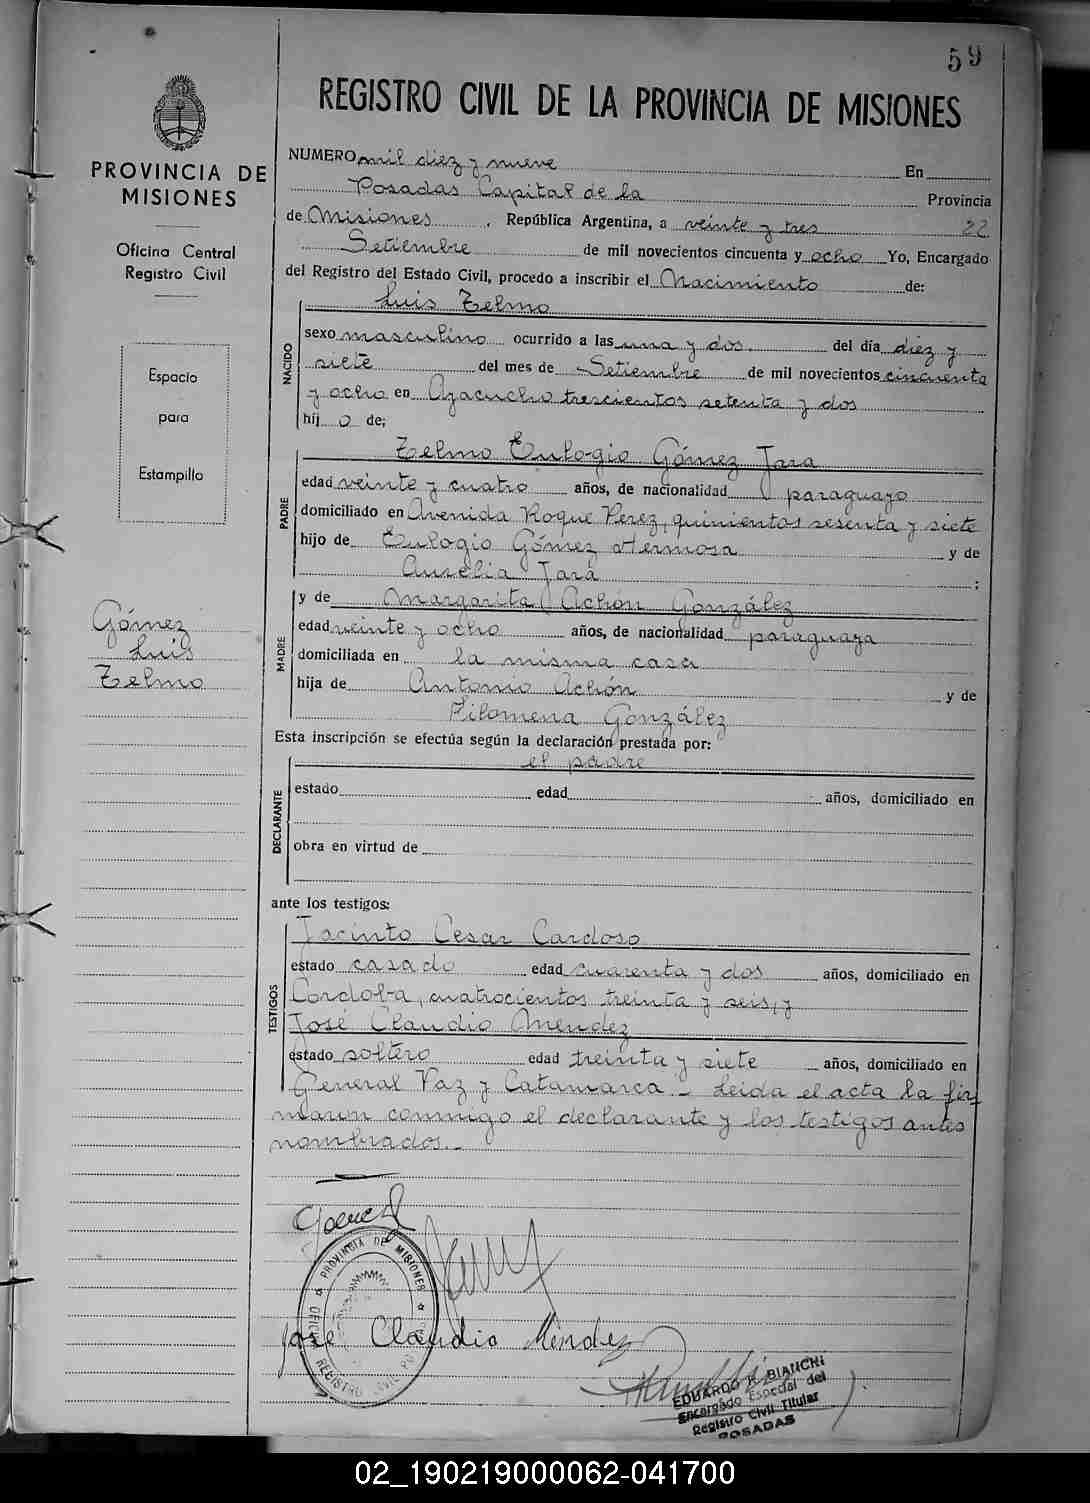 59
REGISTRO CIVIL DE LA PROVINCIA DE MISIONES
PROVINCIA DE
MISIONES
Oficina Central
Registro Civil
Espacio
para
Estampilla
Gómez
Luis
Telmo
NUMERO mil diez y nueve En
Posadas Capital de la Provincia
de Misiones, República Argentina, a veinte y tres
Setiembre de mil novecientos cincuenta y ocho Yo, Encargado
del Registro del Estado Civil, procedo a inscribir el Nacimiento de:
NACIDO
Luis Telmo
sexo masculino ocurrido a las una y dos del día diez y
siete del mes de Setiembre de mil novecientos cincuenta
y ocho en Ayacucho trescientos setenta y dos
hij o de;
PADRE
Telmo Eulogio Gómez Jara
edad veinte y cuatro años, de nacionalidad paraguayo
domiciliado en Avenida Roque Perez, quinientos sesenta y siete
hijo de Eulogio Gómez Hermosa y de
Aurelia Jara ;
MADRE
y de Margarita Achón González
edad veinte y ocho años, de nacionalidad paraguaya
domiciliada en la misma casa
hija de Antonio Achón y de
Filomena González
Esta inscripción se efectúa según la declaración prestada por:
DECLARANTE
el padre
estado edad años, domiciliado en
obra en virtud de
ante los testigos:
TESTIGOS
Jacinto Cesar Cardoso
estado casado edad cuarenta y dos años, domiciliado en
Cordoba, cuatrocientos treinta y seis, y
José Claudio Mendez
estado soltero edad treinta y siete años, domiciliado en
General Paz y Catamarca - Leida el acta la fir
maron conmigo el declarante y los testigos antes
nombrados.-
PROVINCIA DE MISIONES
REGISTRO CIVIL
José Claudio Méndez
EDUARDO P. BIANCHI
Encargado Especial del
Registro Civil Titular
POSADAS
02_190219000062-041700